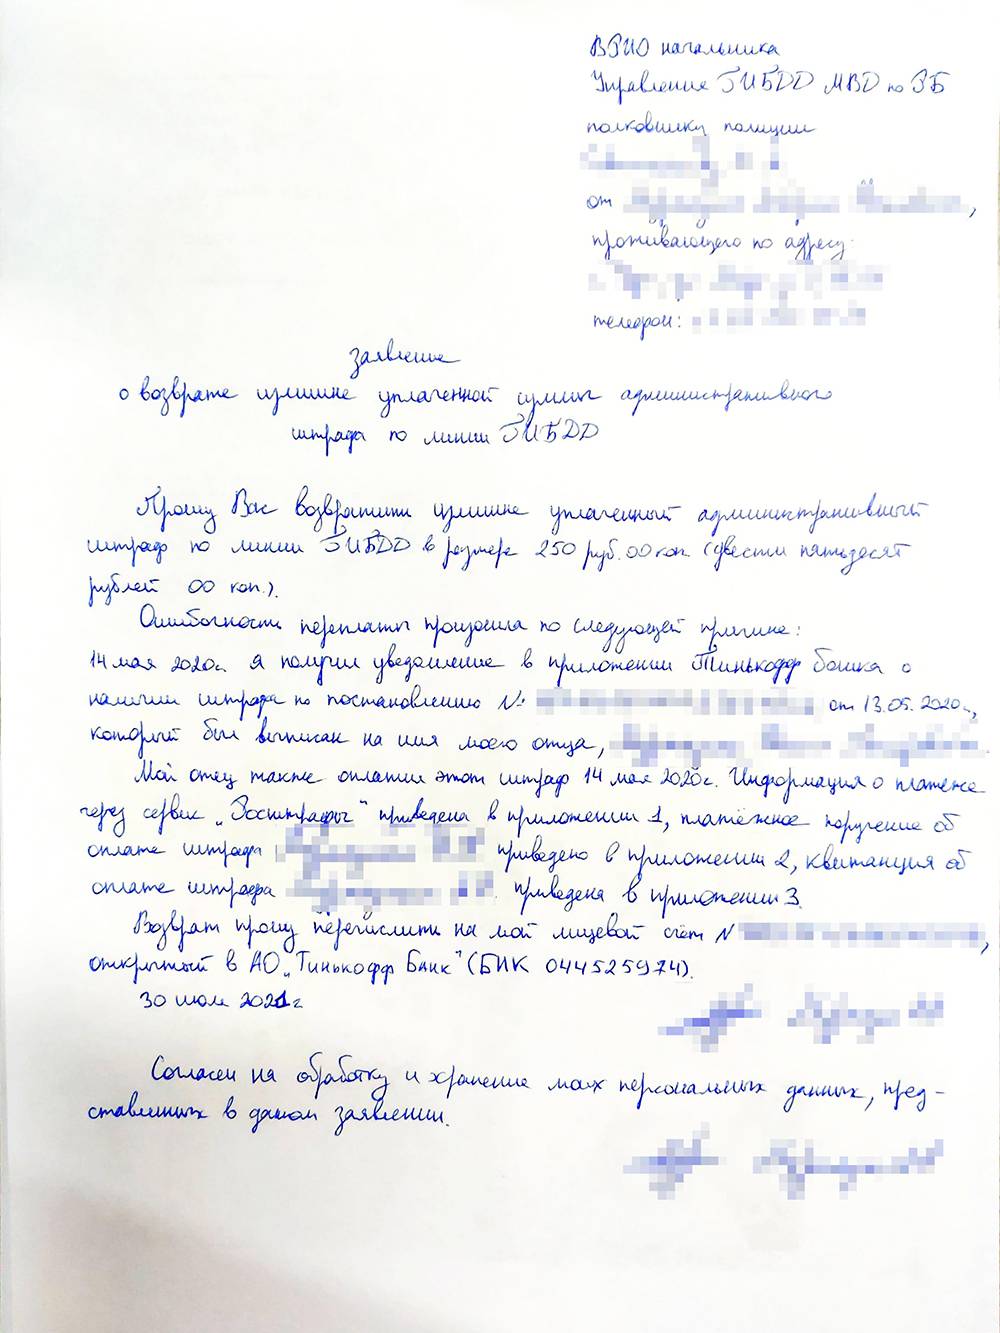 ВРИО начальника
Управления ГИБДД МВД по РБ
полковнику полиции
от
,
проживающего по адресу:
телефон:
заявление
о возврате излишне уплаченной суммы административного
штрафа по линии ГИБДД
Прошу Вас возвратить излишне уплаченный административный
штраф по линии ГИБДД в размере 250 руб. 00 коп. (двести пятьдесят
рублей 00 коп.).
Ошибочность переплаты произошла по следующей причине:
14 мая 2020г. я получил уведомление в приложении Тинькофф банка о
наличии штрафа по постановлению №
от 13.05.2020г.,
который был выписан на имя моего отца,
Мой отец также оплатил этот штраф 14 мая 2020г. Информация о платеже
через сервис „Росштрафы" приведена в приложении 1, платёжное поручение об
оплате штрафа
приведено в приложении 2, квитанция об
оплате штрафа
приведена в приложении 3.
Возврат прошу перечислить на мой лицевой счёт N
,
открытый в АО „Тинькофф Банк" (БИК 044525974).
30 июля 2021г
Согласен на обработку и хранение моих персональных данных, пред-
ставленных в данном заявлении.